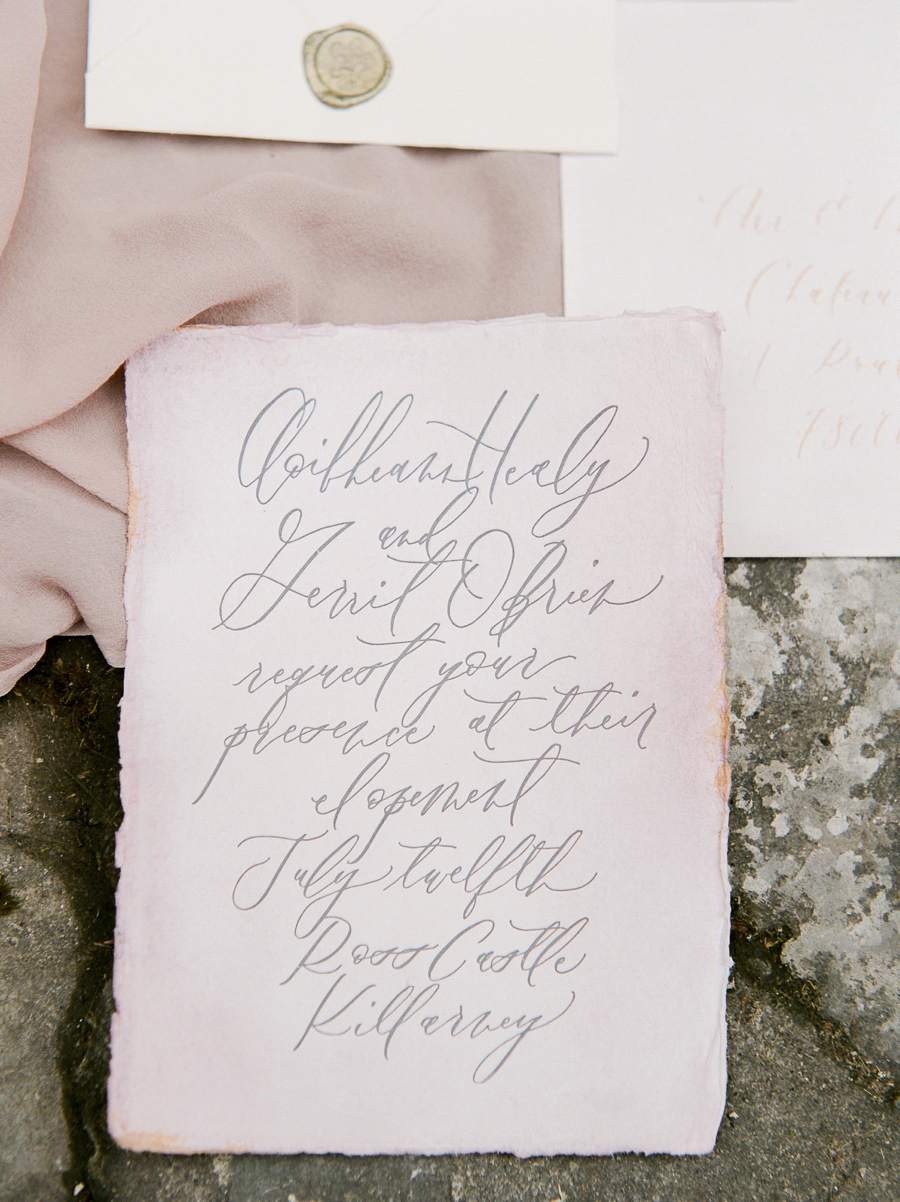 Aoibheann Healy
and
Gerrit O'Brien
request your
presence at their
elopement
July twelfth
Ross Castle
Killarney